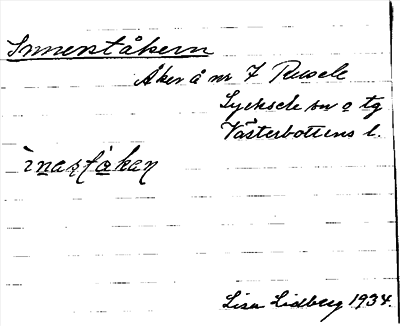 Innerståkern
Åker å nr 7 Rusele
Lycksele sn o tg
Västerbottens l.
Lisa Lidberg 1934.